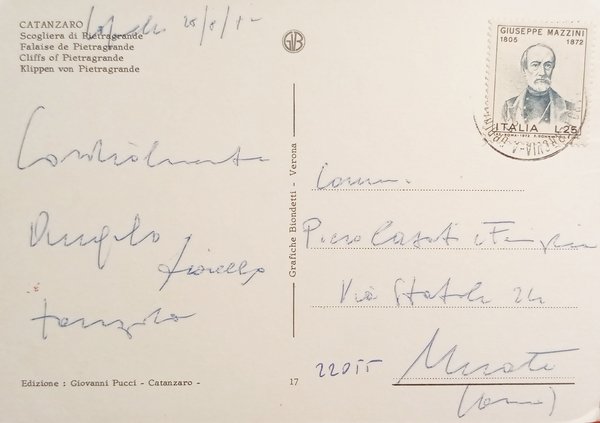 CATANZARO
Scogliera di Pietragrande
Falaise de Pietragrande
Cliffs of Pietragrande
Klippen von Pietragrande
GIUSEPPE MAZZINI
1805 1872
ITALIA L.25
Cordialmente
Angelo
famiglia
Grafiche Biondetti - Verona
Comm.
Piero Casati e Famiglia
Via Statale 24
22055 Merate
(Como)
Edizione : Giovanni Pucci - Catanzaro -
17